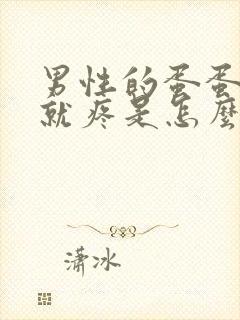 男性的蛋蛋
就疼是怎麼
潇冰